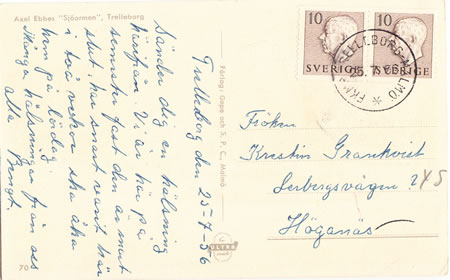 Axel Ebbes "Sjöormen", Trelleborg
Trelleborg den 25-7-56
Sänder dig en hälsning
härifrån. Vi är här på
semester fast den är snart
slut, har snart varit här
i två veckor ska åka
hem på lördag.
Många hälsningar från oss
alla Bengt.
70
Förlag: Gepe och S. P. C., Malmö
ULTRA
10 10
SVERIGE SVERIGE
TRELLBORG-MALMÖ
25.7.56
Fröken
Kerstin Grankvist
45
Höganäs